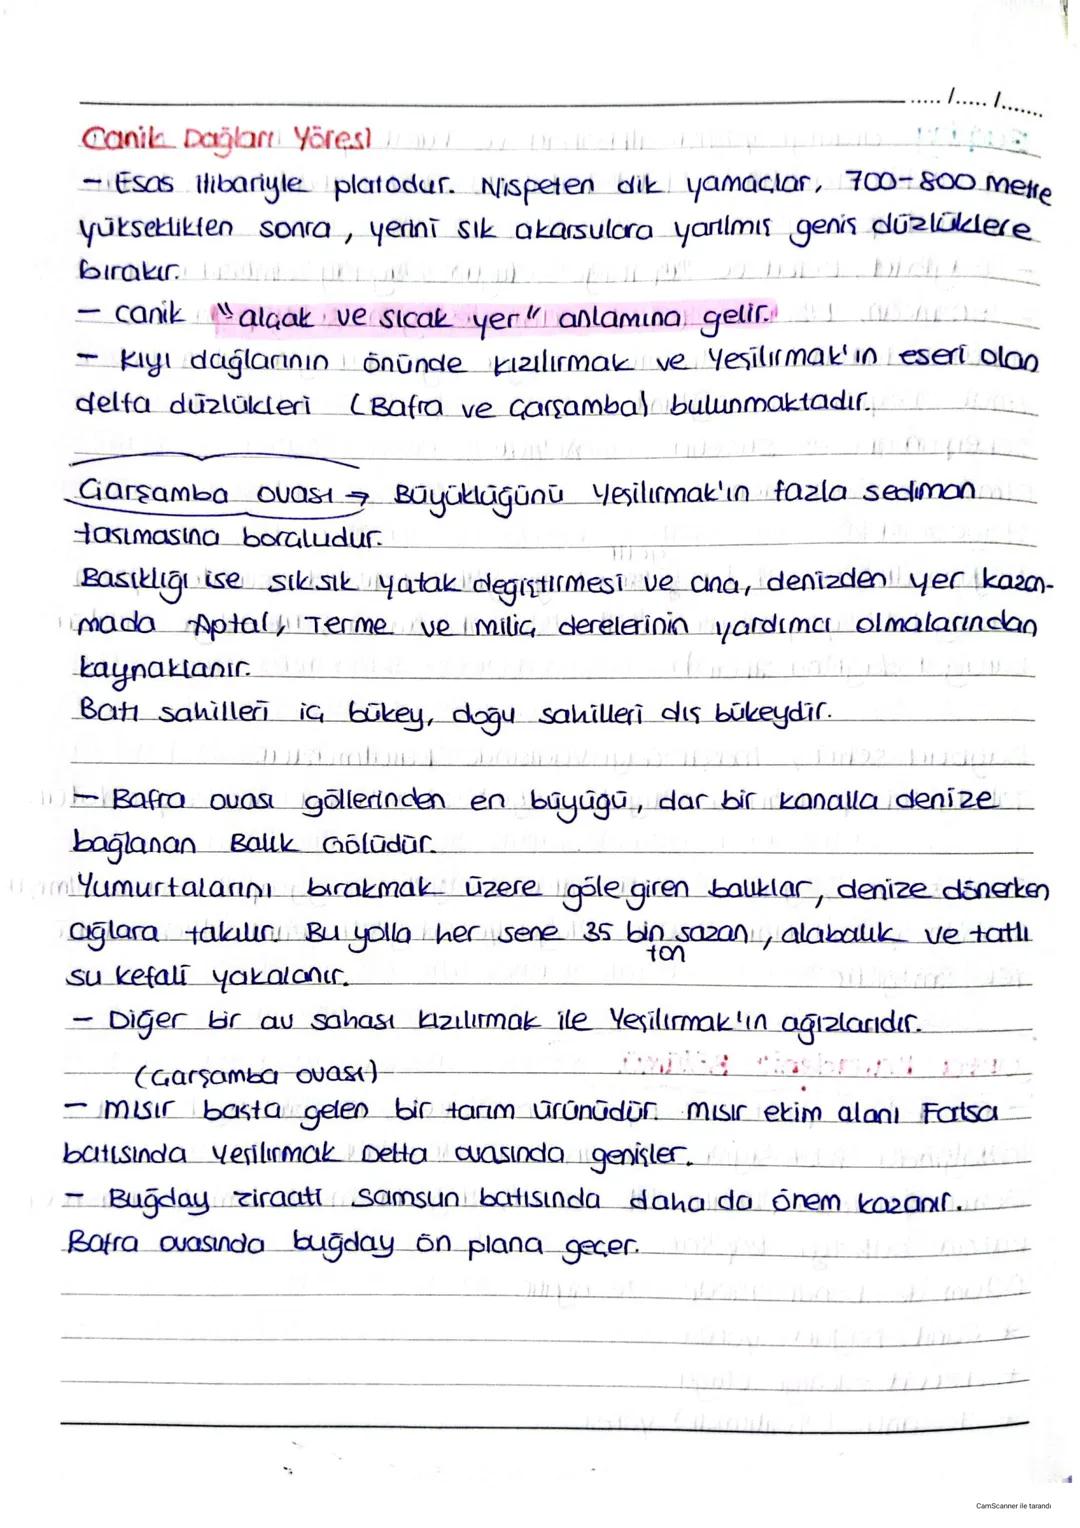 ..... /..... /.......
Canik Dağları Yöresi
- Esas itibariyle platodur. Nispeten dik yamaçlar, 700-800 metre
yükseklikten sonra, yerini sık akarsulara yarılmış geniş düzlüklere
bırakır.
- Canik "alçak ve sıcak yer" anlamına gelir.
- Kıyı dağlarının önünde Kızılırmak ve Yeşilırmak'ın eseri olan
delta düzlükleri (Bafra ve Çarşamba) bulunmaktadır.
Çarşamba ovası → Büyüklüğünü Yeşilırmak'ın fazla sediman
taşımasına borçludur.
Basıklığı ise sık sık yatak değiştirmesi ve ona, denizden yer kazan-
mada Aptal, Terme ve Miliç derelerinin yardımcı olmalarından
kaynaklanır.
Batı sahilleri iç bükey, doğu sahilleri dış bükeydir.
- Bafra ovası göllerinden en büyüğü, dar bir kanalla denize
bağlanan Balık Gölüdür.
Yumurtalarını bırakmak üzere göle giren balıklar, denize dönerken
ağlara takılır. Bu yolla her sene 35 bin sazan, alabalık ve tatlı
ton
su kefali yakalanır.
- Diğer bir av sahası Kızılırmak ile Yeşilırmak'ın ağızlarıdır.
(Çarşamba ovası)
- Mısır başta gelen bir tarım ürünüdür. Mısır ekim alanı Fatsa
batısında Yeşilırmak Delta ovasında genişler.
- Buğday ziraati Samsun batısında daha da önem kazanır.
Bafra ovasında buğday ön plana geçer.
CamScanner ile tarandı